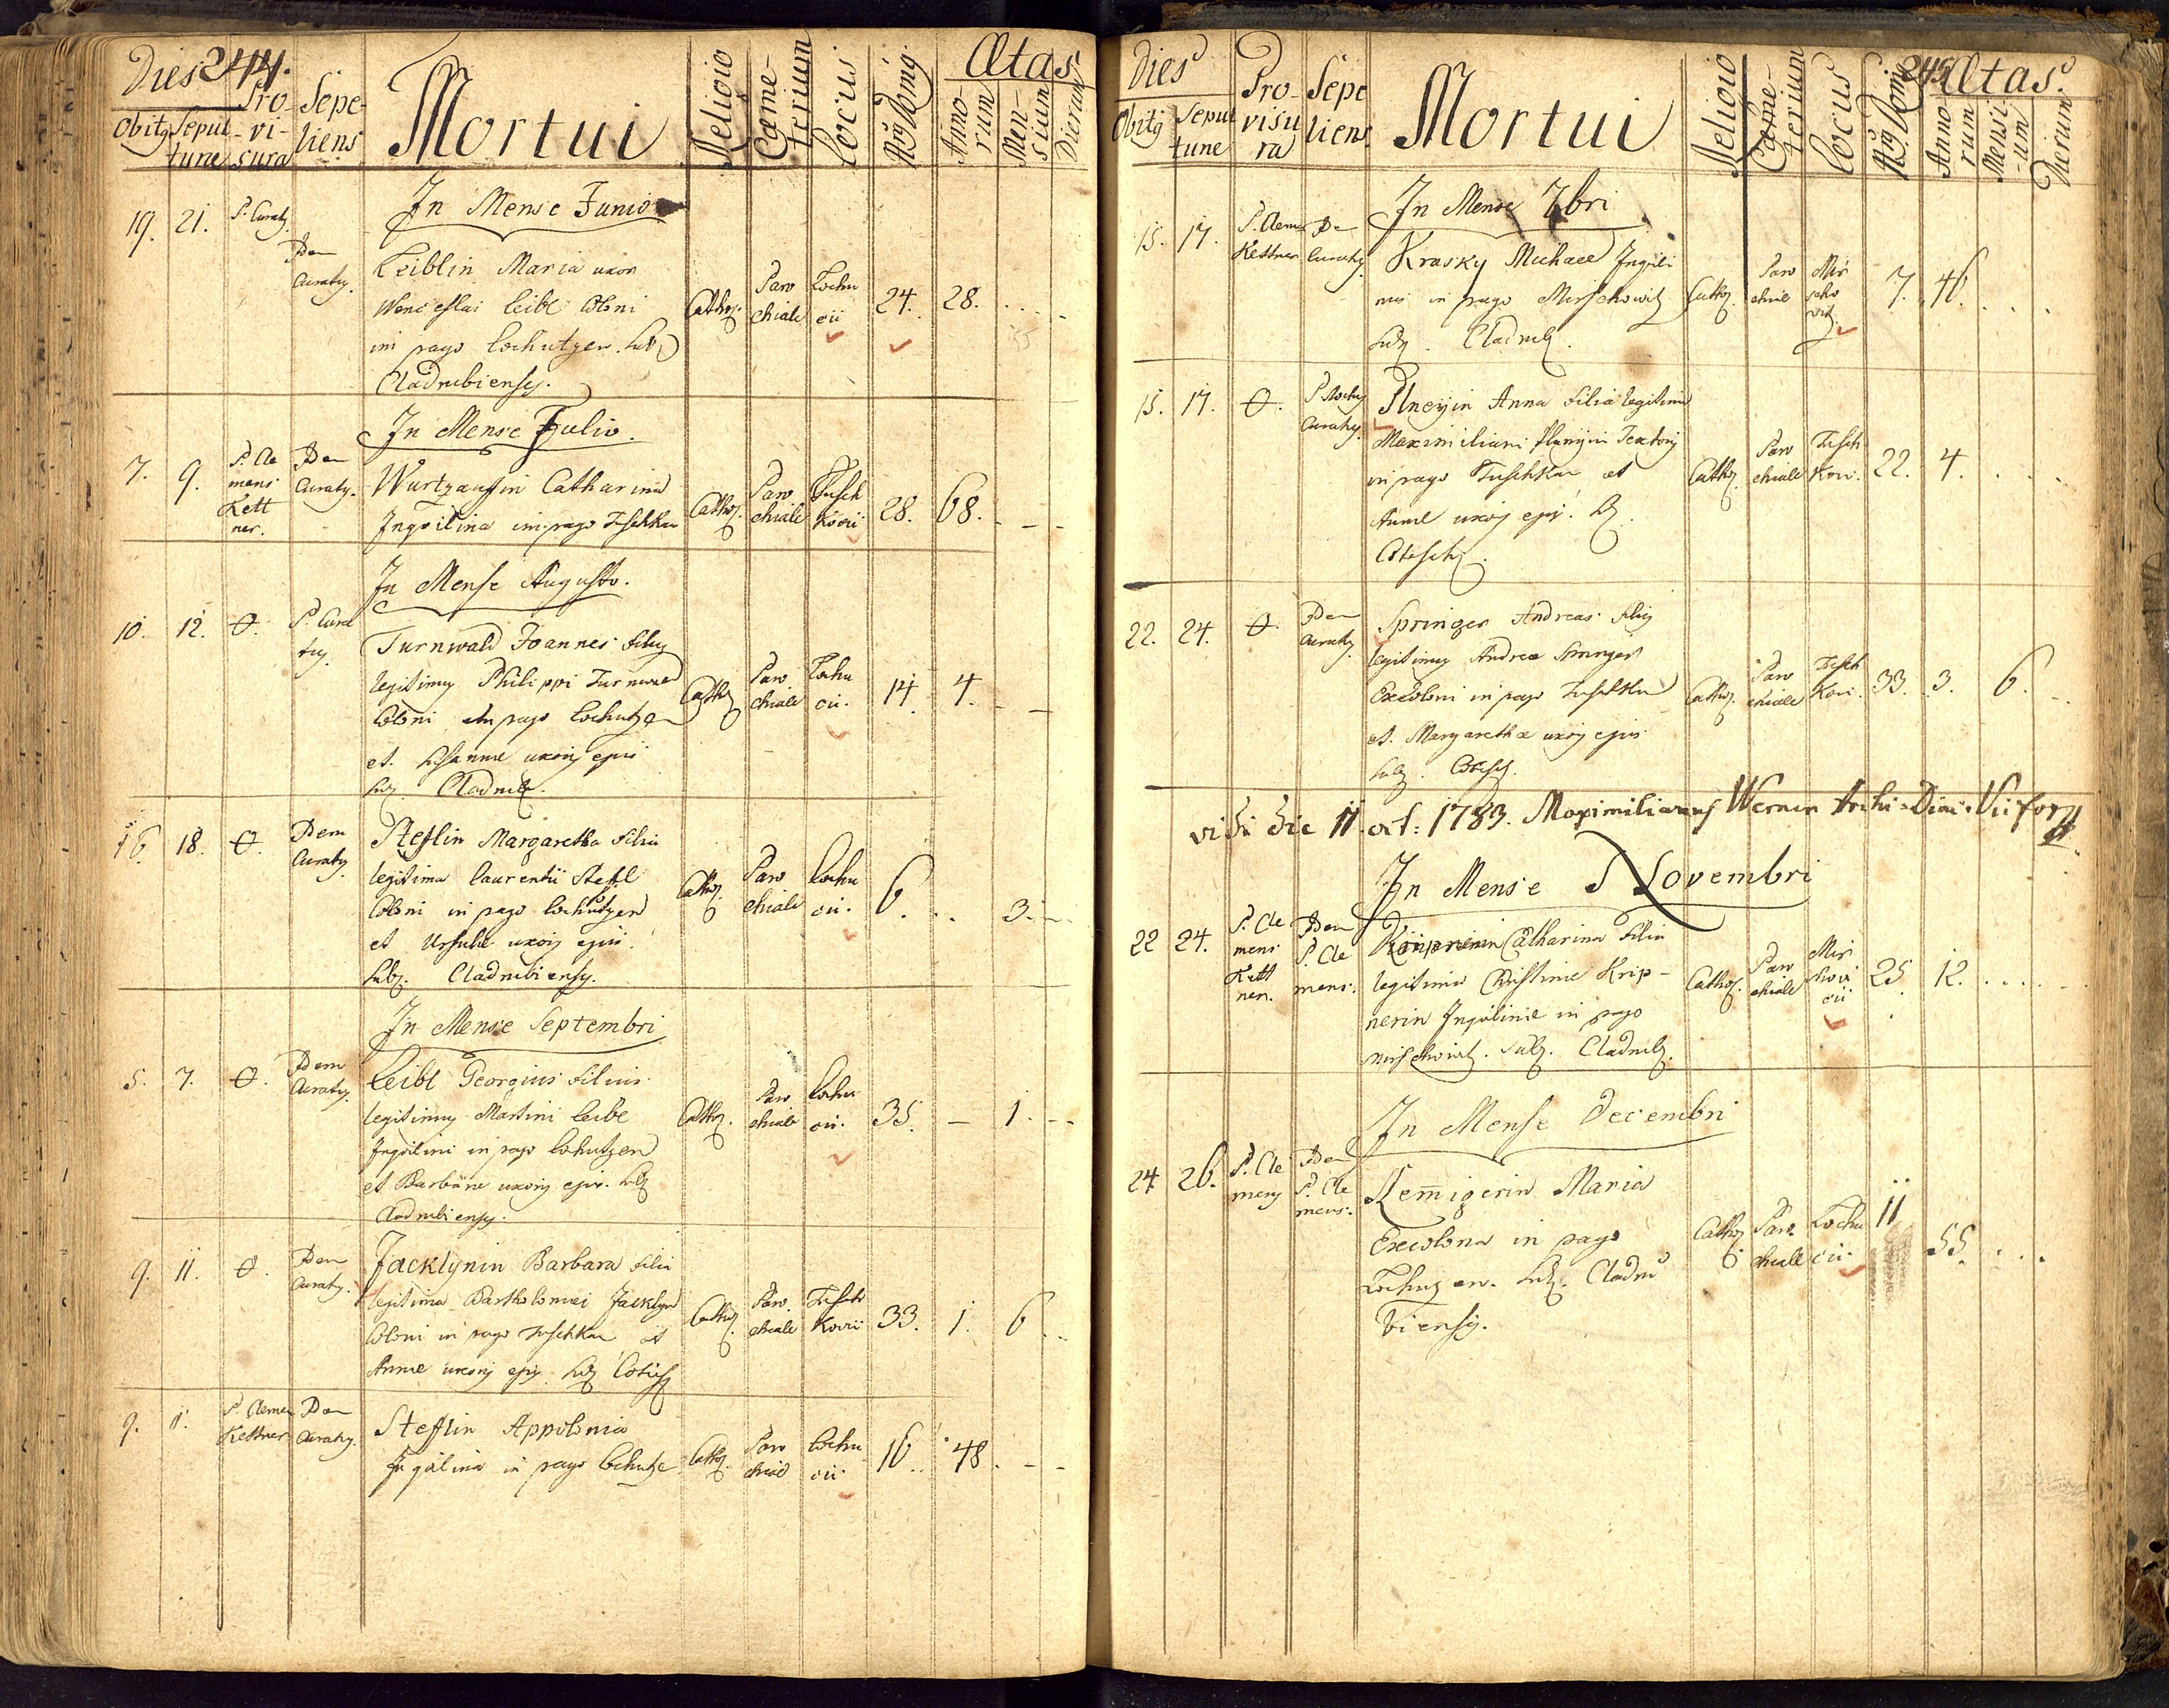 Dies 244.
Obitq Sepul tune
Pro-vi-sura
Sepe-liens
Mortui
Religio
Cœme-terium
Locus
Nrq Domq
Ætas
Anno-rum
Men-sium
Dierum
In Mense Junio
19. 21. P. Curatq. Dem Curatq.
Leiblin Maria uxor
Wenceslai Leibl Coloni
in pago Lochutzen. Sub
Cladrubiensq.
Cathol. Paro chiale Lochu cii 24. 28.
In Mense Julio.
7. 9. P. Cle mens Kett ner. Dem Curatq.
Catharina
Inquilina in pago Tuschkau
Cathol. Paro chiale Tusch kovii 28. 68.
In Mense Augusto.
10. 12. O. P. Cura tq.
Turnwald Joannes filiq
legitimq Philippi Turnwald
Coloni in pago Lochutzen
et Susannæ uxoris ejus
Sub. Cladrub.
Cathol. Paro chiale Lochu cii. 14. 4.
16. 18. O. Dem Curatq.
Steflin Margaretha filia
legitima Laurentii Stefl
Coloni in pago Lochutzen
et Ursulæ uxoris ejus.
Sub. Cladrubiensq.
Cathol. Paro chiale Lochu cii. 6. 3.
In Mense Septembri
5. 7. O. Dem Curatq.
Leibl Georgius filius
legitimq Martini Leibl
Inquilini in pago Lochutzen
et Barbaræ uxoris ejus. Sub
Cladrubiensq.
Cathol. Paro chiale Lochu cii. 35. – 1.
9. 11. O. Dem Curatq.
Jacklynin Barbara filia
legitima Bartholomæi Jacklyn
Coloni in pago Tuschkau et
Annæ uxoris ejus. Sub
Cathol. Paro chiale Tusch kovii 33. 1. 6
9. 11. P. Clemen Kettner Dem Curatq.
Steflin Appolonia
Inquilina in pago Lochutze
Cathol. Paro chiale Lochu cii. 16. 48.
Dies
Obitq Sepul tune
Pro-visu ra
Sepe liens
Mortui
Religio
Cœme-terium
Locus
Nrq Domq
245
Ætas.
Anno rum
Mensi-um
Dierum
In Mense 7bri
15. 17. P. Clemen Kettner De Curatq.
Krasky Michael Inquili
nus in pago Mirschowitz
Sub. Cladrub.
Cathol. Paro chiale Mir scho vitz. 7. 46.
15. 17. O. Curatq.
Anna filia legitima
Maximiliani
in pago Tuschkau et
Annæ uxoris ejus.
Cathol. Paro chiale Tusch kovi. 22. 4.
22. 24. O. Dem Curatq.
Springer Andreas filiq
legitimq Andreæ Springer
Excoloni in pago Tuschkau
et. Margarethæ uxoris ejus
Sub.
Cathol. Paro chiale Tusch kovi. 33. 3. 6.
vidi die 11 oct: 1783. Maximilianus Werner Archi-Diac: Vic: for:
In Mense Novembri
22 24. P. Cle mens Kett ner. Dem P. Cle mens.
Catharina filia
legitima Christinæ Krip-
nerin Inquilinæ in pago
Mirschowitz. Sub. Cladrub.
Cathol. Paro chiale Mir schovi cii. 25 12.
In Mense Decembri
24. 26. P. Cle mens Dem P. Cle mens.
Remigerin Maria
Excolona in pago
Lochuzen. Sub. Cladru
biensis.
Cathol. Paro chiale Lochu cii. 11 55.